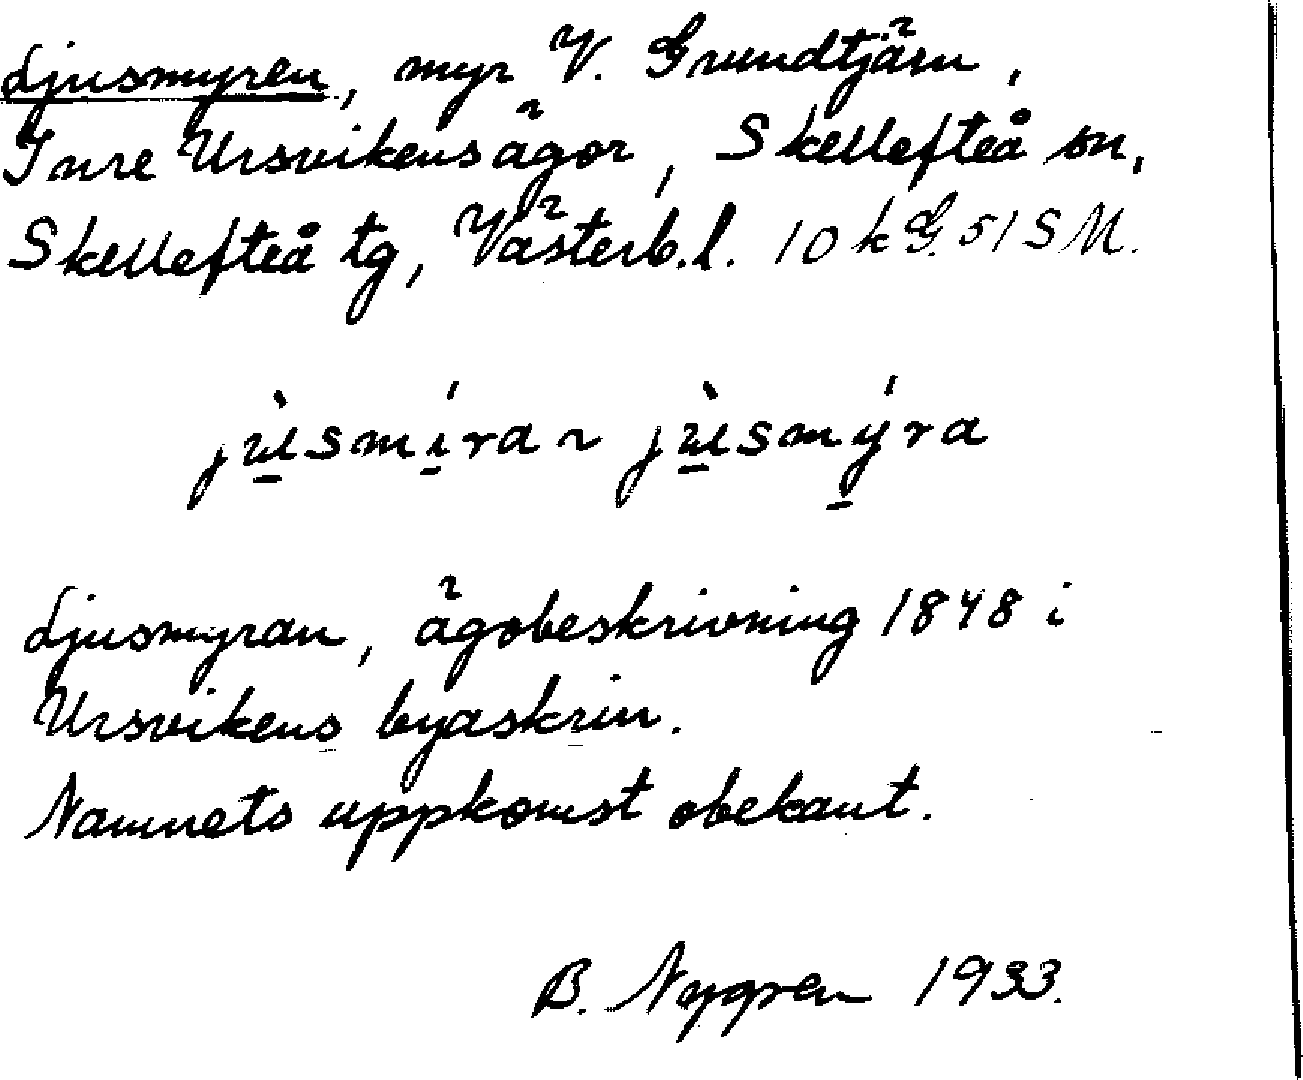 Ljusmyren, myr V. Grundtjärn,
Inre Ursvikens ägor, Skellefteå sn,
Skellefteå tg, Västerb.l. 10 k G. 51 S M.
jùsmíra ~ jùsmýra
Ljusmyran, ägobeskrivning 1848 i
Ursvikens byaskrin.
Namnets uppkomst obekant.
B. Nygren 1933.